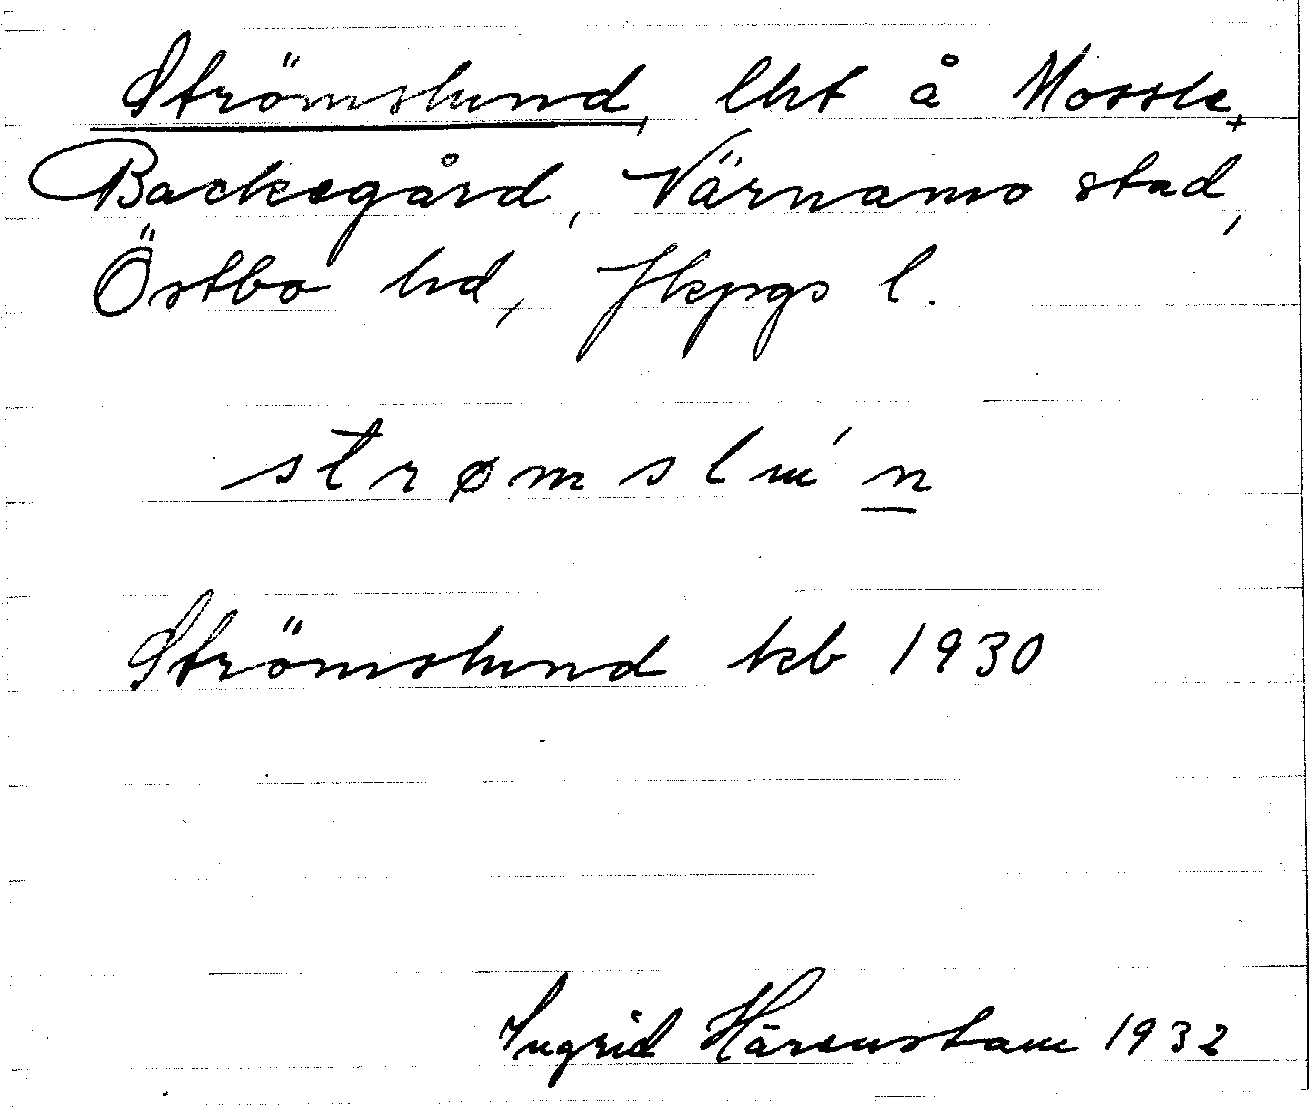 Strömslund, lht å Mossle,
Backegård, Värnamo stad,
Östbo hd, Jkpgs l.
strømslu´n
Strömslund kb 1930
Ingrid Härenstam 1932